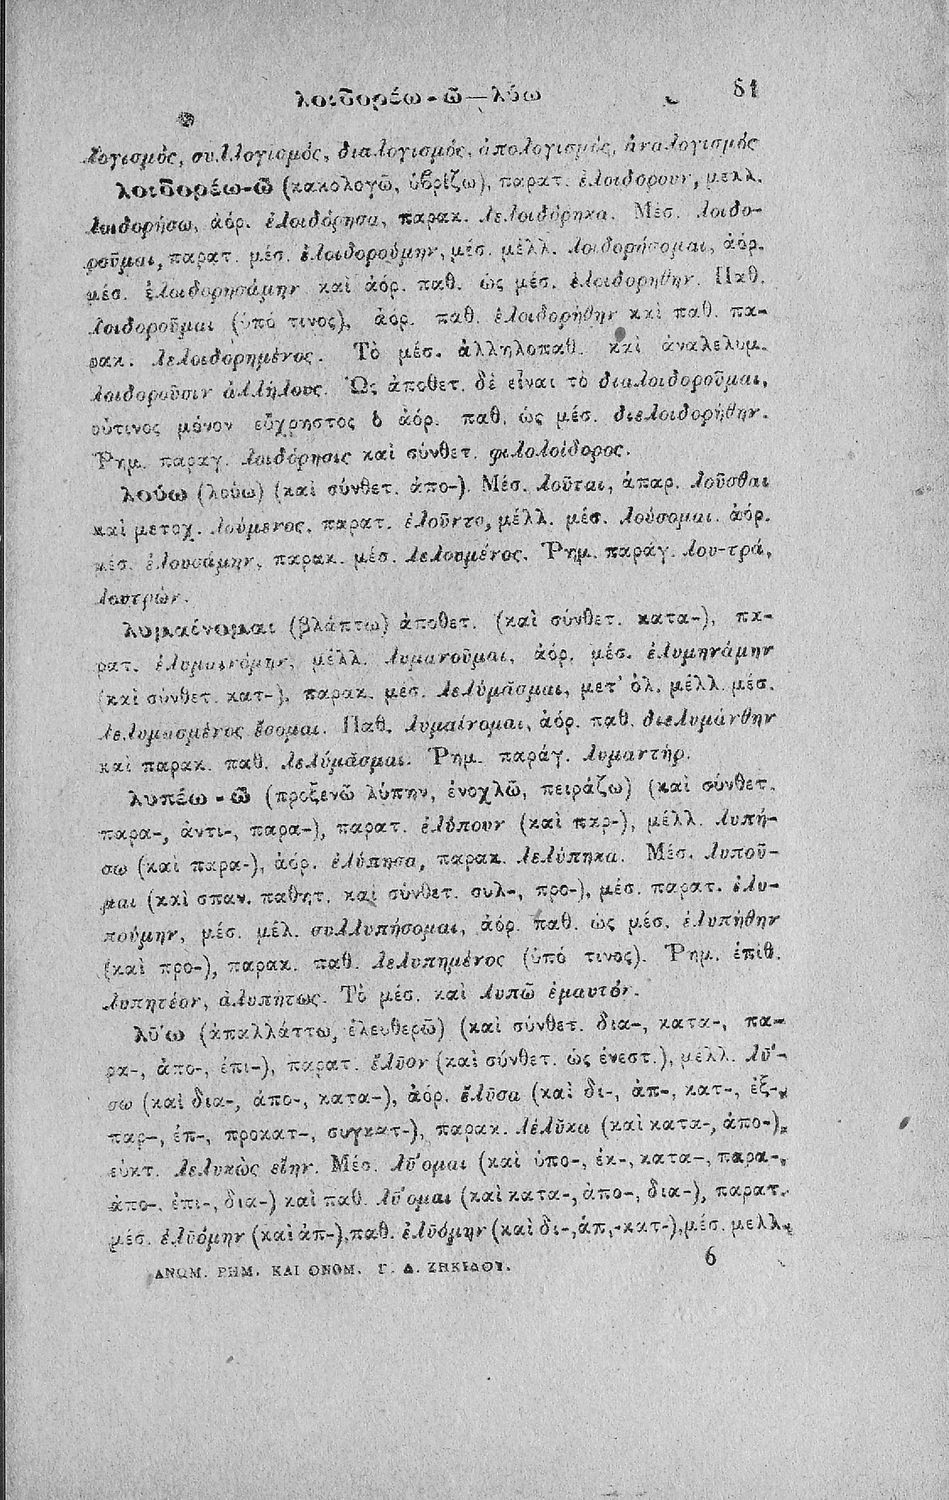 λοιδορέω-ῶ—λύω 81
λογισμός, συλλογισμός, διαλογισμός, ἀπολογισμός, ἀναλογισμός
λοιδορέω-ῶ (κακολογῶ, ὑβρίζω), παρατ. ἐλοιδόρουν, μελλ.
λοιδορήσω, ἀόρ. ἐλοιδόρησα, παρακ. λελοιδόρηκα. Μέσ. λοιδο-
ροῦμαι, παρατ. μέσ. ἐλοιδορούμην, μέσ. μέλλ. λοιδορήσομαι, ἀόρ.
μέσ. ἐλοιδορησάμην καὶ ἀόρ. παθ. ὡς μέσ. ἐλοιδορήθην. Παθ.
λοιδοροῦμαι (ὑπό τινος), ἀόρ. παθ. ἐλοιδορήθην καὶ παθ. πα-
ρακ. λελοιδορημένος. Τὸ μέσ. ἀλληλοπαθ. καὶ ἀναλελυμ.
λοιδοροῦσιν ἀλλήλους. Ὡς ἀποθετ. δὲ εἶναι τὸ διαλοιδοροῦμαι,
οὗτινος μόνον εὔχρηστος ὁ ἀόρ. παθ. ὡς μέσ. διελοιδορήθην.
Ῥημ. παραγ. λοιδόρησις καὶ σύνθετ. φιλολοίδορος.
λούω (λούω) (καὶ σύνθετ. ἀπο-). Μέσ. λοῦται, ἀπαρ. λοῦσθαι
καὶ μετοχ. λούμενος, παρατ. ἐλοῦντο, μέλλ. μέσ. λούσομαι. ἀόρ.
μέσ. ἐλουσάμην, παρακ. μέσ. λελουμένος. Ῥημ. παράγ. λου-τρά,
λουτρών.
λυμαίνομαι (βλάπτω) ἀποθετ. (καὶ σύνθετ. κατα-), πα-
ρατ. ἐλυμαινόμην, μέλλ. λυμανοῦμαι, ἀόρ. μέσ. ἐλυμηνάμην
(καὶ σύνθετ. κατ-), παρακ. μέσ. λελύμᾱσμαι, μετ' ὀλ. μέλλ. μέσ.
λελυμασμένος ἔσομαι. Παθ. λυμαίνομαι, ἀόρ. παθ. διελυμάνθην
καὶ παρακ. παθ. λελύμᾱσμαι. Ῥημ. παράγ. λυμαντήρ.
λυπέω-ῶ (προξενῶ λύπην, ἐνοχλῶ, πειράζω) (καὶ σύνθετ.
παρα-, ἀντι-, παρα-), παρατ. ἐλύπουν (καὶ παρ-), μέλλ. λυπή-
σω (καὶ παρα-), ἀόρ. ἐλύπησα, παρακ. λελύπηκα. Μέσ. λυποῦ-
μαι (καὶ σπαν. παθητ. καὶ σύνθετ. συλ-, προ-), μέσ. παρατ. ἐλυ-
πούμην, μέσ. μέλ. συλλυπήσομαι, ἀόρ. παθ. ὡς μέσ. ἐλυπήθην
(καὶ προ-), παρακ. παθ. λελυπημένος (ὑπό τινος). Ῥημ. ἐπίθ.
λυπητέον, ἀλυπήτως. Τὸ μέσ. καὶ λυπῶ ἐμαυτόν.
λῡ́ω (ἀπαλλάττω, ἐλευθερῶ) (καὶ σύνθετ. δια-, κατα-, πα-
ρα-, ἀπο-, ἐπι-), παρατ. ἔλῡον (καὶ σύνθετ. ὡς ἐνεστ.), μέλλ. λῡ́-
σω (καὶ δια-, ἀπο-, κατα-), ἀόρ. ἔλῡσα (καὶ δι-, ἀπ-, κατ-, ἐξ-,
παρ-, ἐπ-, προκατ-, συγκατ-), παρακ. λέλῠκα (καὶ κατα-, ἀπο-),
εὐκτ. λελυκὼς εἴην. Μέσ. λῡ́ομαι (καὶ ὑπο-, ἐκ-, κατα-, παρα-,
ἀπο-, ἐπι-, δια-) καὶ παθ. λῡ́ομαι (καὶ κατα-, ἀπο-, δια-), παρατ.
μέσ. ἐλῡόμην (καὶ ἀπ-), παθ. ἐλῡόμην (καὶ δι-, ἀπ,-κατ-), μέσ. μελλ.
ΑΝΩΜ. ΡΗΜ. ΚΑΙ ΟΝΟΜ. Γ. Δ. ΖΗΚΙΔΟΥ. 6